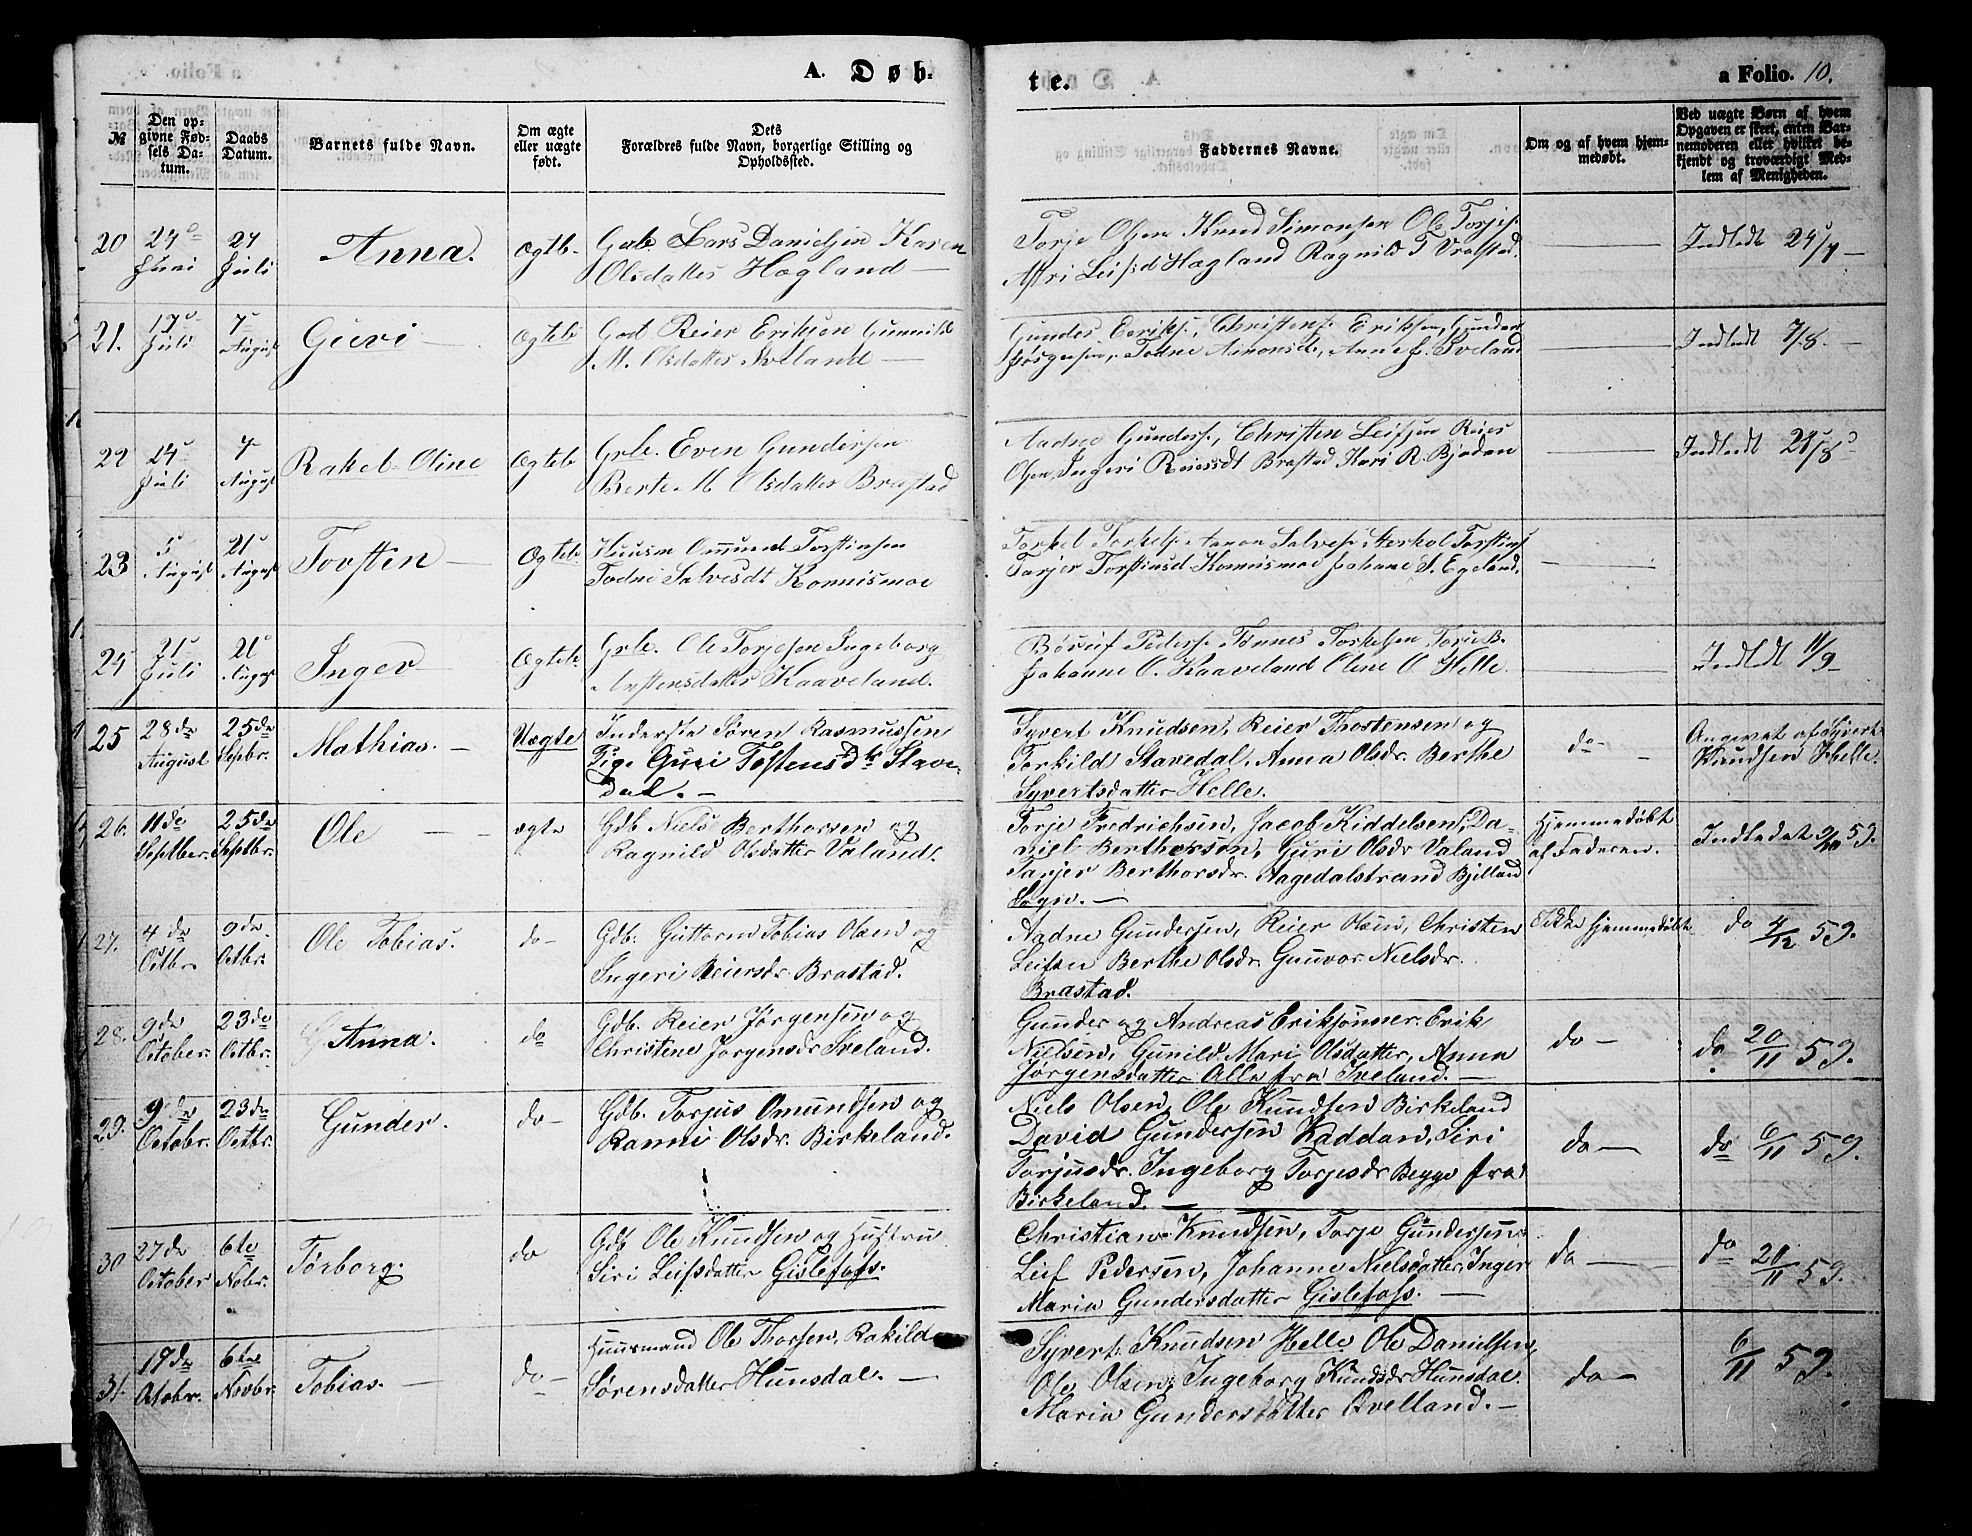 A. Døb-
te.
a Folio. 10.
№
Den op-
givne Fød-
sels Da-
tum.
Daabs
Datum.
Barnets fulde Navn.
Om ægte
eller uægte
født.
Dets
Forældres fulde Navn, borgerlige Stilling og
Opholdssted.
Faddernes Navne.
Om og af hvem hjem-
medøbt.
Ved uægte Børn af hvem
Opgaven er skeet, enten Bar-
nemoderen eller hvilket be-
kjendt og troværdigt Med-
lem af Menigheden.
20
24
Juni
24
Juli
Anna.
Ægtb.
Grb. Lars Danielsen Karen
Olsdatter Hogland —
Torje Olsen Knud Simonsen Ole Torjes.
Leifsd Hogland Ragnild T Vralstad.
Indledt 24/7 —
21.
17
Juli
7
August
Guri —
Ægteb
Reier Eriksen Gunnild
M. Olsdatter
Gunder Eeriks., Christens Eriksen, Gunder
Jørgensen, Todne Anne
Indledt 7/8. —
22
24
Juli
7
August
Rakel Oline
Ægteb
Grb. Even Gundersen
Berte M Olsdatter Brastad
Aadne Gunders., Christen Leifsen Reier
Olsen, Ingeri Reiersdt Brastad Kari R. Bjodan
Indledt
23
5
August
21
August
Torsten —
Ægteb.
Huusm Omund Torstinsen
Todni Salvesdt Konnismoe
Torkel Torkels. Aanon Salves.
Tarjer Torstinsd Konnismoe Johane S. Egeland.
24
21
Juli
21
August
Inger —
Ægteb
Grb. Ole Torjesen Ingeborg
Kaaveland.
Peders. Tønnes Torkelsen
Johanne O. Kaaveland Oline O Helle.
Indledt 11/9
25
28de
August
25de
Septbr.
Mathias. —
Uægte
Inderste Søren Rasmussen
Pige Guri Tostensdtr Stave-
dal. —
Syvert Knudsen, Reier Thostensen og
Torkild Stavedal, Anna Olsdr. Berthe
Syvertsdatter Helle.
do —
Angivet af Syvert
Knudsen Helle.
26.
11de
Septber.
25de
Septbr.
Ole — -
ægte
Gdb. Niels Berthorsen og
Ragnild Olsdatter Valand.
Torje Fredrichsen, Jacob Kiddelsen, Da-
niel Berthorsen, Guri Olsdr Valand
Tarjer Berthorsdr. Aagedalstrand Bjelland
Sogn. —
Hjemmedøbt
af Faderen.
Indledet 9/10 59.
27.
4de
Octbr.
9de
Octbr.
Ole Tobias.
do —
Gdb. Guttorm Tobias Olsen og
Ingeri Reiersdr. Brastad.
Aadne Gundersen, Reier Olsen, Christen
Leifsen Berthe Olsdr. Gunvor Nielsdr.
Brastad.
Ikke hjemmedøbt
do 4/12 59.
28.
9de
October.
23de
Octbr.
Anna.
do
Gdb. Reier Jørgensen og
Christene Jørgensdr Iveland.
Gunder og Andreas Eriksønner. Erik
Nielsen, Gunild Mari Olsdatter, Anna
Jørgensdatter Alle fra Iveland. —
do —
do 20/11 59.
29.
9de
Octobr.
23de
Octbr.
Gunder.
do —
Gdb. Torjus Omundsen og
Ranni Olsdr. Birkeland.
Niels Olsen, Ole Knudsen Birkeland
David Gundersen Kaddan, Siri
Torjusdr. Ingeborg Torjesdr Begge fra
Birkeland. —
do —
do 6/11 59.
30
27de
October
6te
Nobr.
Tørborg.
do
Gdb Ole Knudsen og Hustru
Siri Leifsdatter Gislefoss.
Christian Knudsen, Torje Gundersen
Leif Pedersen, Johanne Nielsdatter, Inger
Maria Gundersdatter Gislefoss. —
do —
do 20/11 59.
31.
17de
Octobr.
6te
Novbr.
Tobias. —
do —
Huusmand Ole Thorsen, Rakild
Sørensdatter Hunsdal. —
Syvert Knudsen Helle Ole Danielsen,
Ole Olsen, Ingeborg Knudsdr Hunsdal.
Maria Gundersdatter Qvelland. —
do —
6/11 59.